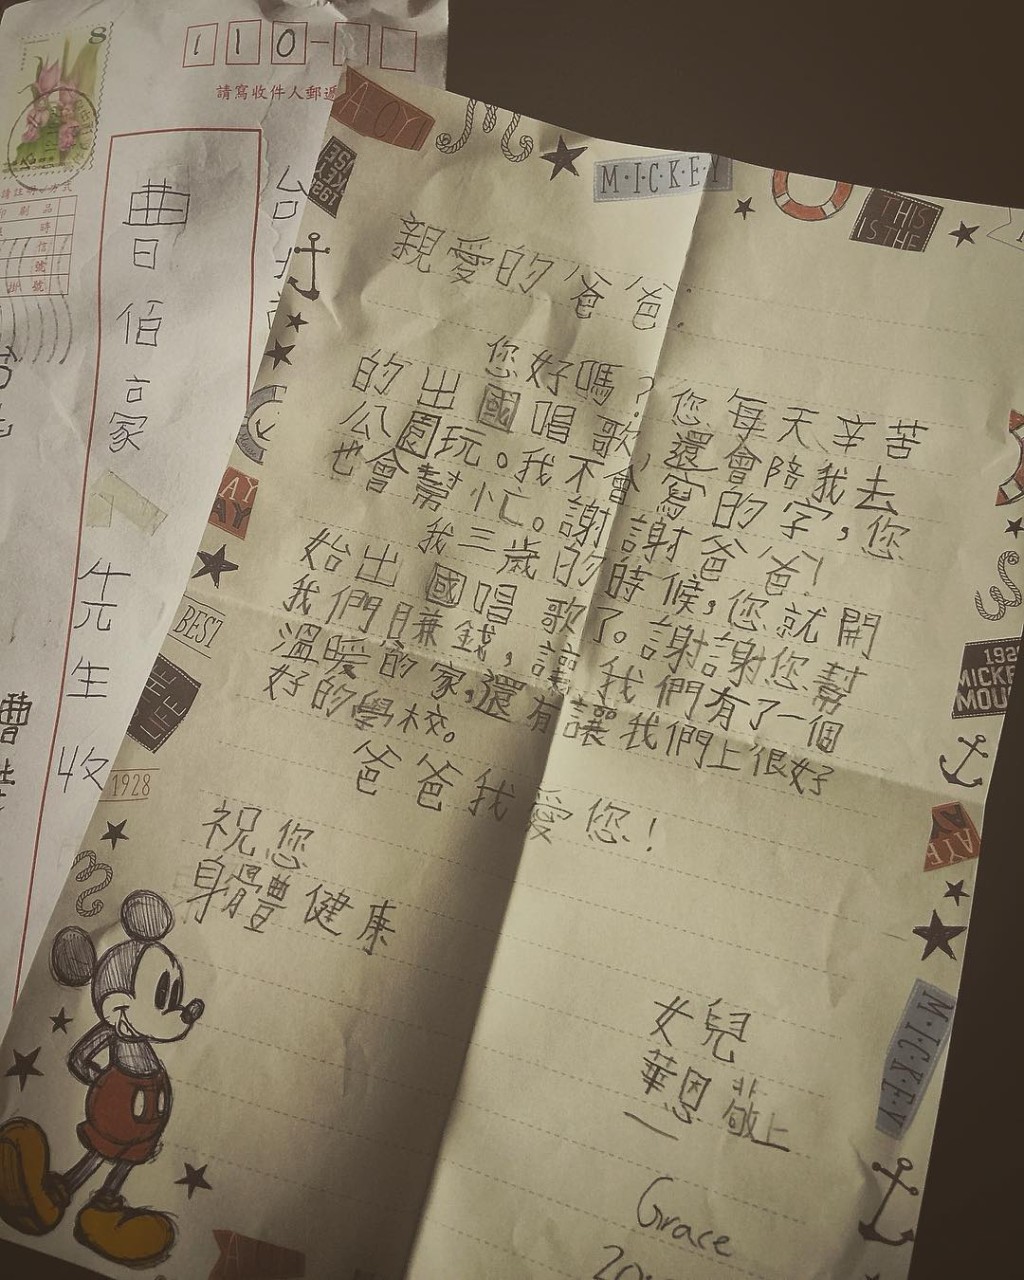 8
110-
請寫收件人郵遞
曹佰豪 先生 收
AOY
MICKEY
THIS
IS THE
親愛的爸爸:
您好嗎?您每天辛苦
的出國唱歌,還會陪我去
公園玩。我不會寫的字,您
也會幫忙。謝謝爸爸!
我三歲的時候,您就開
始出國唱歌了。謝謝您幫
我們賺錢,讓我們有了一個
溫暖的家,還有讓我們上很好
好的學校。
爸爸我愛您!
祝您
身體健康
女兒
華恩敬上
Grace
BEST
1928
MICKEY